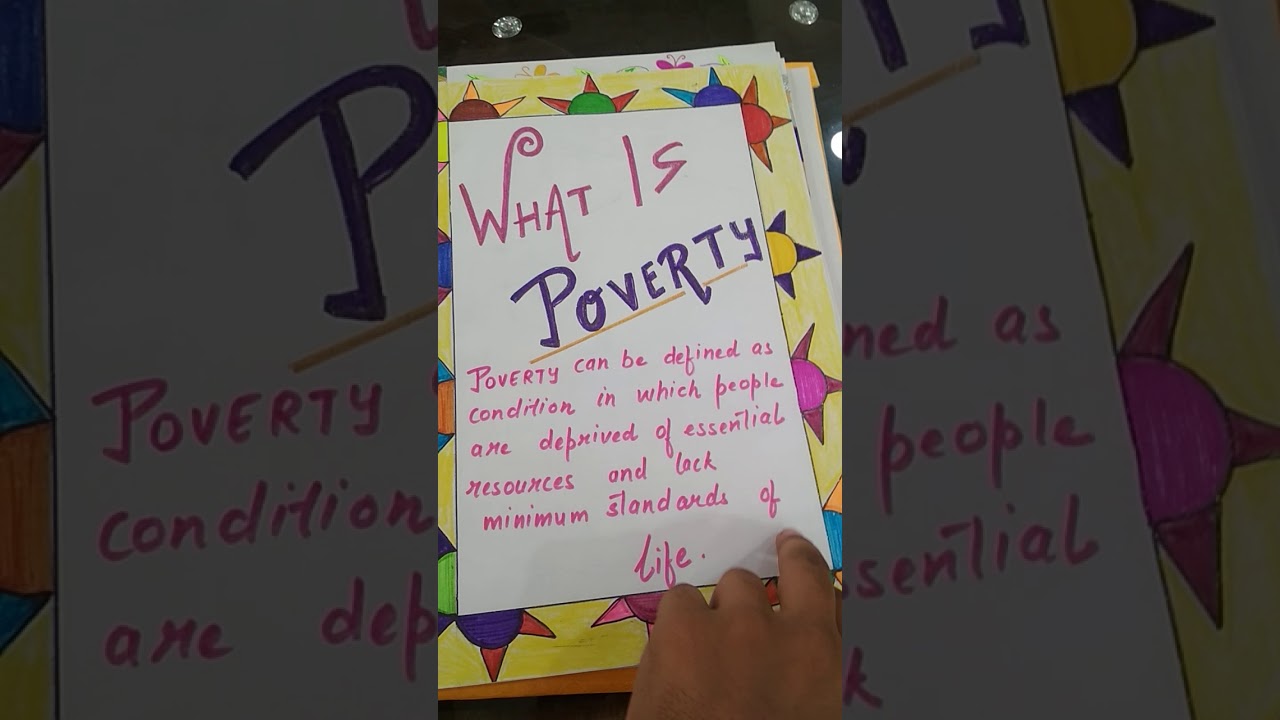 WHAT IS
POVERTY
POVERTY can be defined as
condition in which people
are deprived of essential
resources and lack
minimum standards of
life.